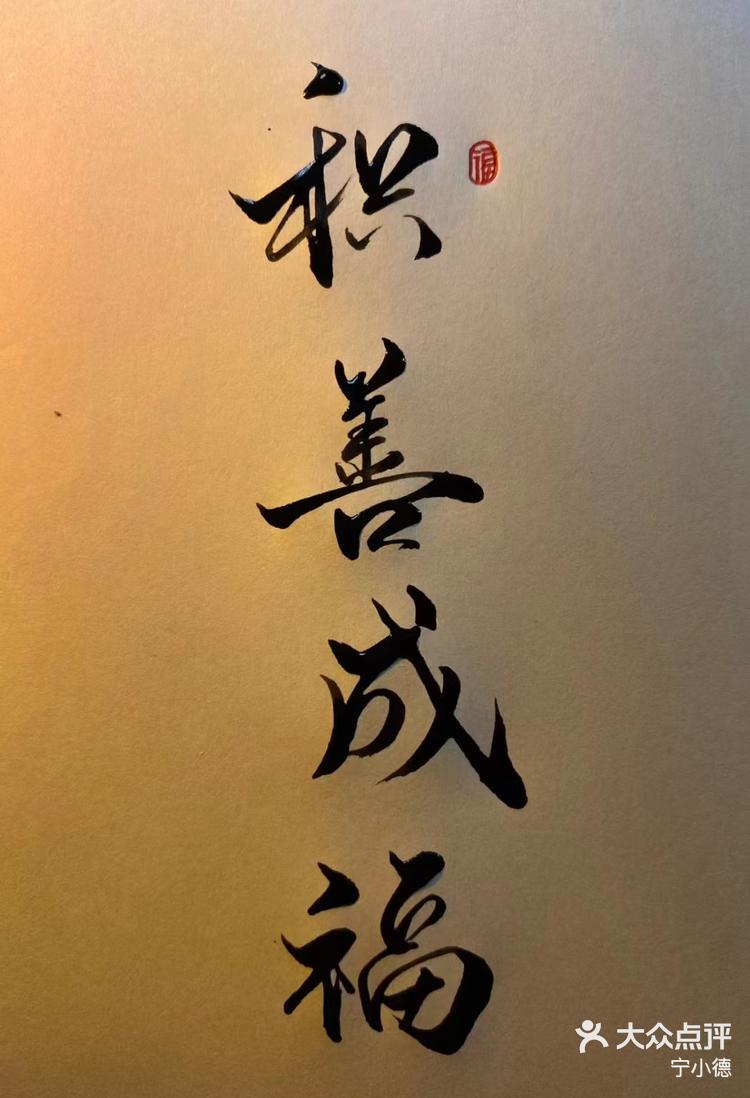 积善成福
福
大众点评
宁小德